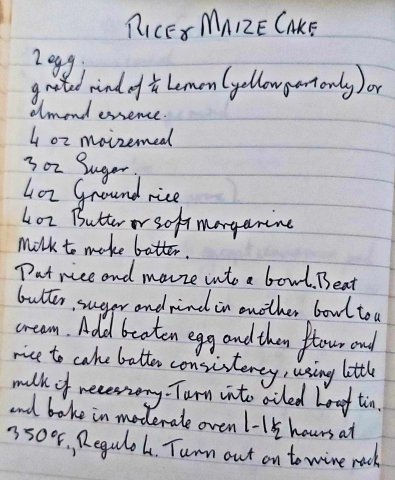 RICE & MAIZE CAKE
2 egg.
grated rind of ½ Lemon (yellow part only) or
almond essence.
4 oz maizemeal
3 oz Sugar.
4 oz Ground rice
4 oz Butter or soft margarine
Milk to make batter.
Put rice and maize into a bowl. Beat
butter, sugar and rind in another bowl to a
cream. Add beaten egg and then flour and
rice to cake batter consistency, using little
milk if necessary. Turn into oiled Loaf tin.
and bake in moderate oven 1-1½ hours at
350°F., Regulo 4. Turn out on to wire rack